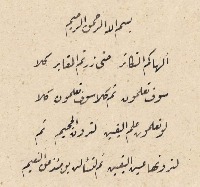 بسم الله الرحمن الرحيم
ألهاكم التكاثر حتى زرتم المقابر كلا
سوف تعلمون ثم كلا سوف تعلمون كلا
لو تعلمون علم اليقين لترون الجحيم ثم
لترونها عين اليقين ثم لتسألن يومئذ عن النعيم